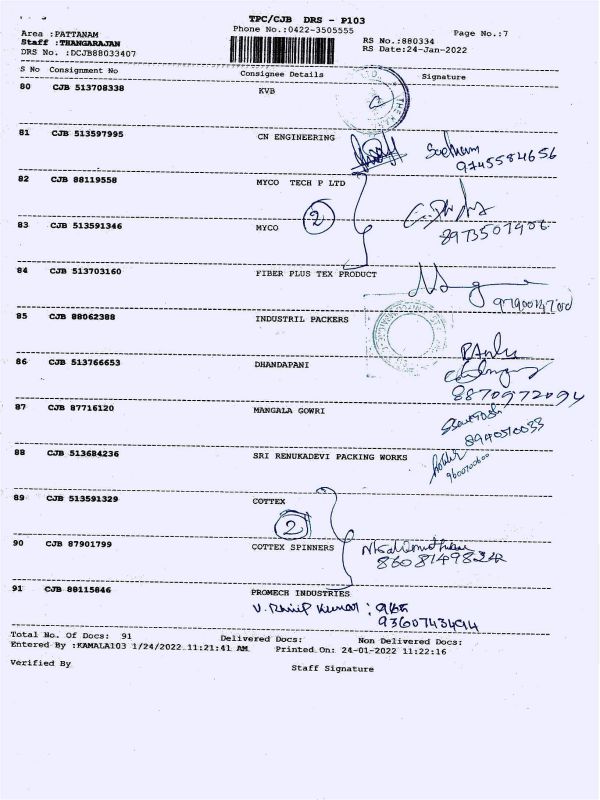 TPC/CJB DRS - P103
Area :PATTANAM Phone No.:0422-3505555 Page No.:7
Staff :THANGARAJAN RS No.:880334
DRS No. :DCJB88033407 RS Date:24-Jan-2022
S No Consignment No Consignee Details Signature
80 CJB 513708338 KVB
81 CJB 513597995 CN ENGINEERING
9745584656
82 CJB 88119558 MYCO TECH P LTD
2
83 CJB 513591346 MYCO
84 CJB 513703160 FIBER PLUS TEX PRODUCT
85 CJB 88062388 INDUSTRIL PACKERS
86 CJB 513766653 DHANDAPANI
8870972094
87 CJB 87716120 MANGALA GOWRI
8940510033
88 CJB 513684236 SRI RENUKADEVI PACKING WORKS
9600700600
89 CJB 513591329 COTTEX
2
90 CJB 87901799 COTTEX SPINNERS
91 CJB 88115846 PROMECH INDUSTRIES
Kumar :
9360743494
Total No. Of Docs: 91 Delivered Docs: Non Delivered Docs:
Entered By :KAMALA103 1/24/2022 11:21:41 AM Printed On: 24-01-2022 11:22:16
Verified By Staff Signature